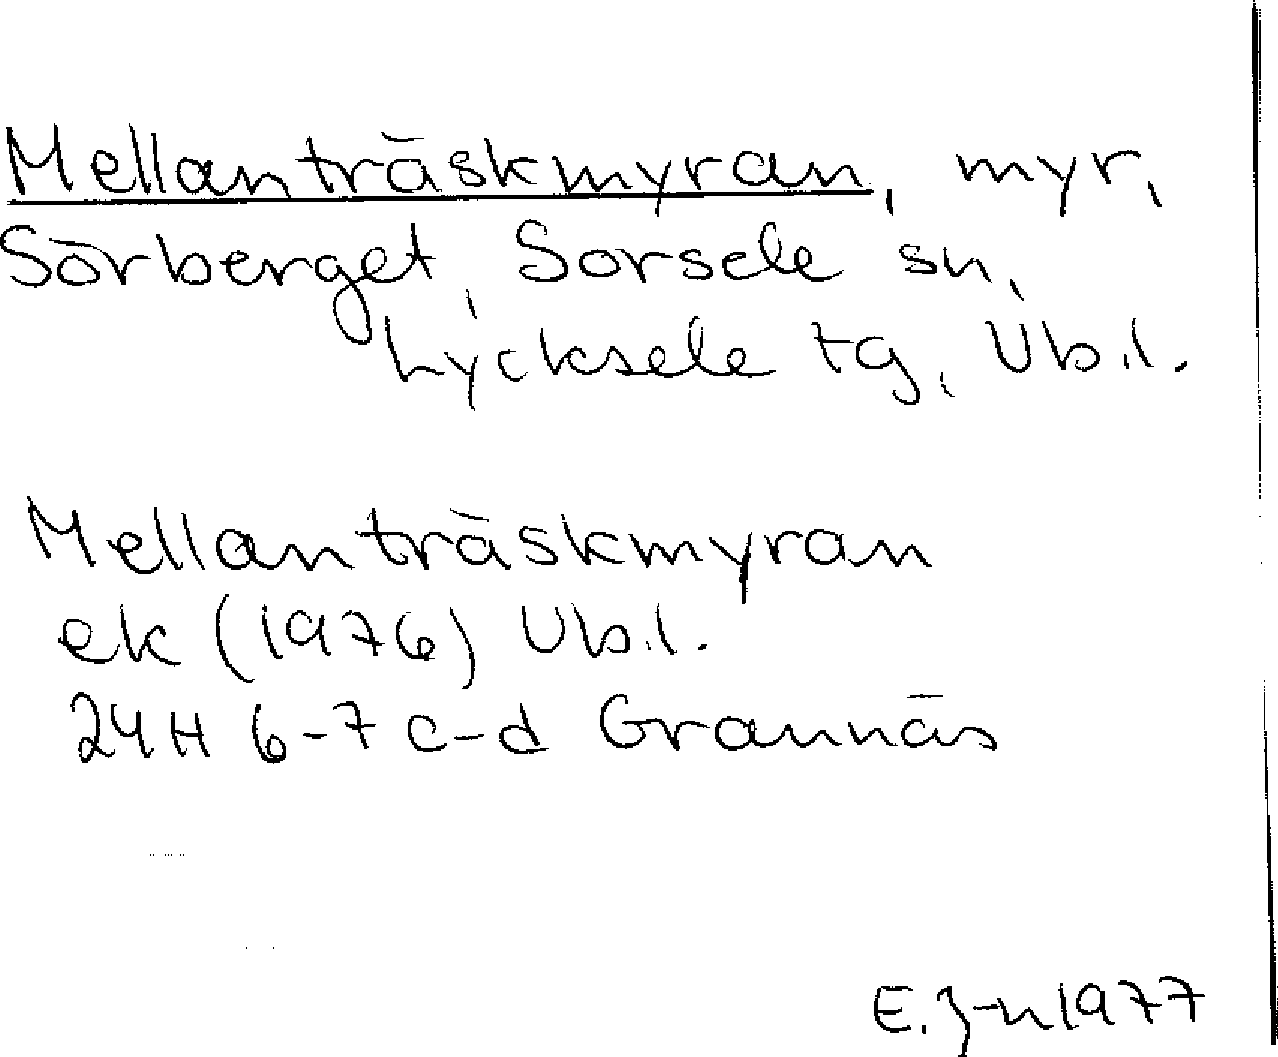 Mellanträskmyran, myr,
Sörberget, Sorsele sn,
Lycksele tg, Vb.l.
Mellanträskmyran
ek (1976) Vb.l.
24H 6-7 c-d Grannäs
E. J-n 1977